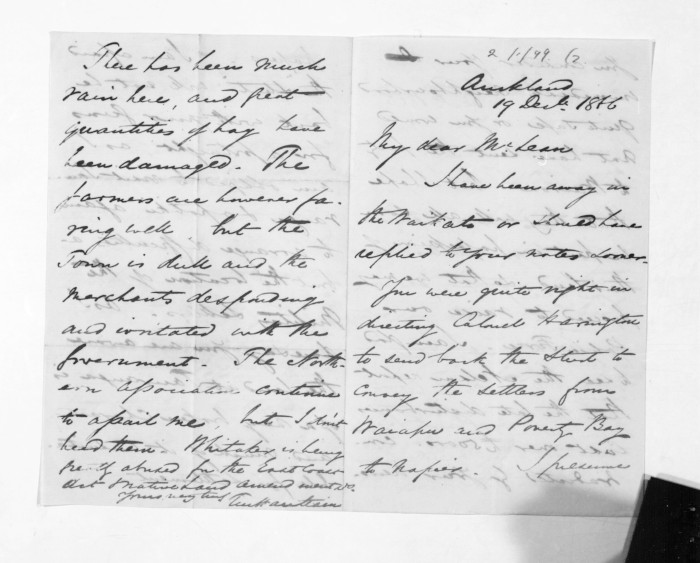 2/1/99 (2
Auckland
19 Decr. 1866
My dear McLean
I have been away in
the Waikato or should have
replied to your notes sooner.
You were quite right in
directing Colonel Harington
to send back the Sturt to
convey the settlers from
Waiapu and Poverty Bay
to Napier. I presume
There has been much
rain here, and great
quantities of hay have
been damaged. The
farmers are however fa-
ring well. but the
Town is dull and the
Merchants desponding
and irritated with the
Government. The North-
ern Association continue
to assail me, but I don't
heed them. Whitaker is being
abused for the East Coast
Act & Native Land amendment
Yours very truly